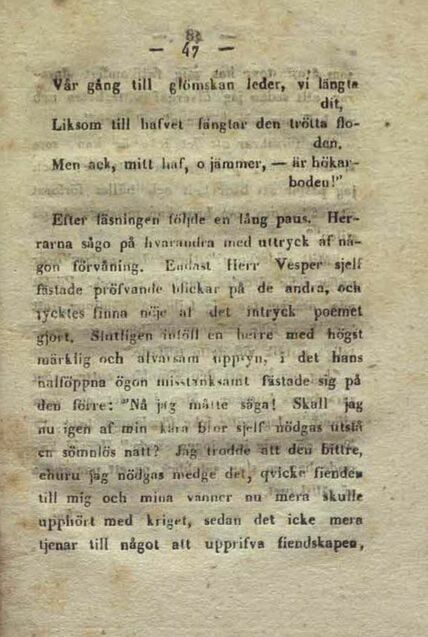 — 47 —
Vår gång till glömskan leder, vi längta
dit,
Liksom till hafvet längtar den trötta flo-
den.
Men ack, mitt haf, o jämmer, — är hökar-
boden!"
Efter läsningen följde en lång paus. Her-
rarna sågo på hvarandra med uttryck af nå-
gon förvåning. Endast Herr Vesper sjelf
fästade pröfvande blickar på de andra, och
tycktes finna nöje af det intryck poemet
gjort. Slutligen inföll en herre med högst
märklig och alvarsam uppsyn, i det hans
halföppna ögon misstänksamt fästade sig på
den förre: "Nå jag måtte säga! Skall jag
nu igen af min kära bror sjelf nödgas utstå
en sömnlös natt? Jag trodde att den bittre,
ehuru jag nödgas medge det, qvicke fienden
till mig och mina vänner nu mera skulle
upphört med kriget, sedan det icke mera
tjenar till något att upprifva fiendskapen,